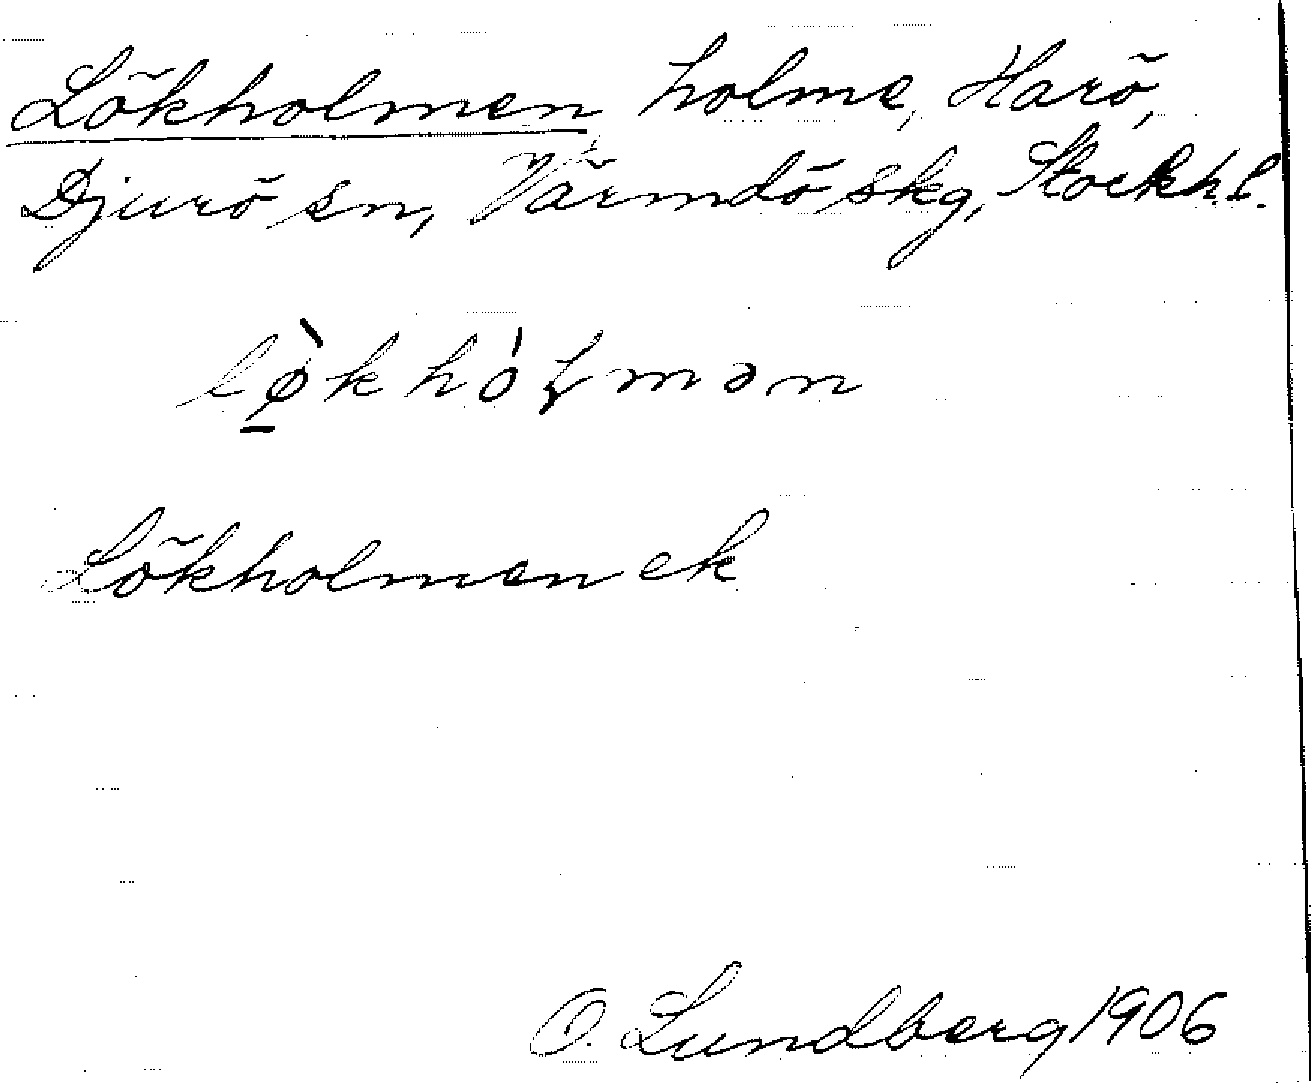 Lökholmen holme, Harö,
Djurö sn, Värmdö skg, Stockh. l.
lø̀khólmən
Lökholmen ek
O. Lundberg 1906